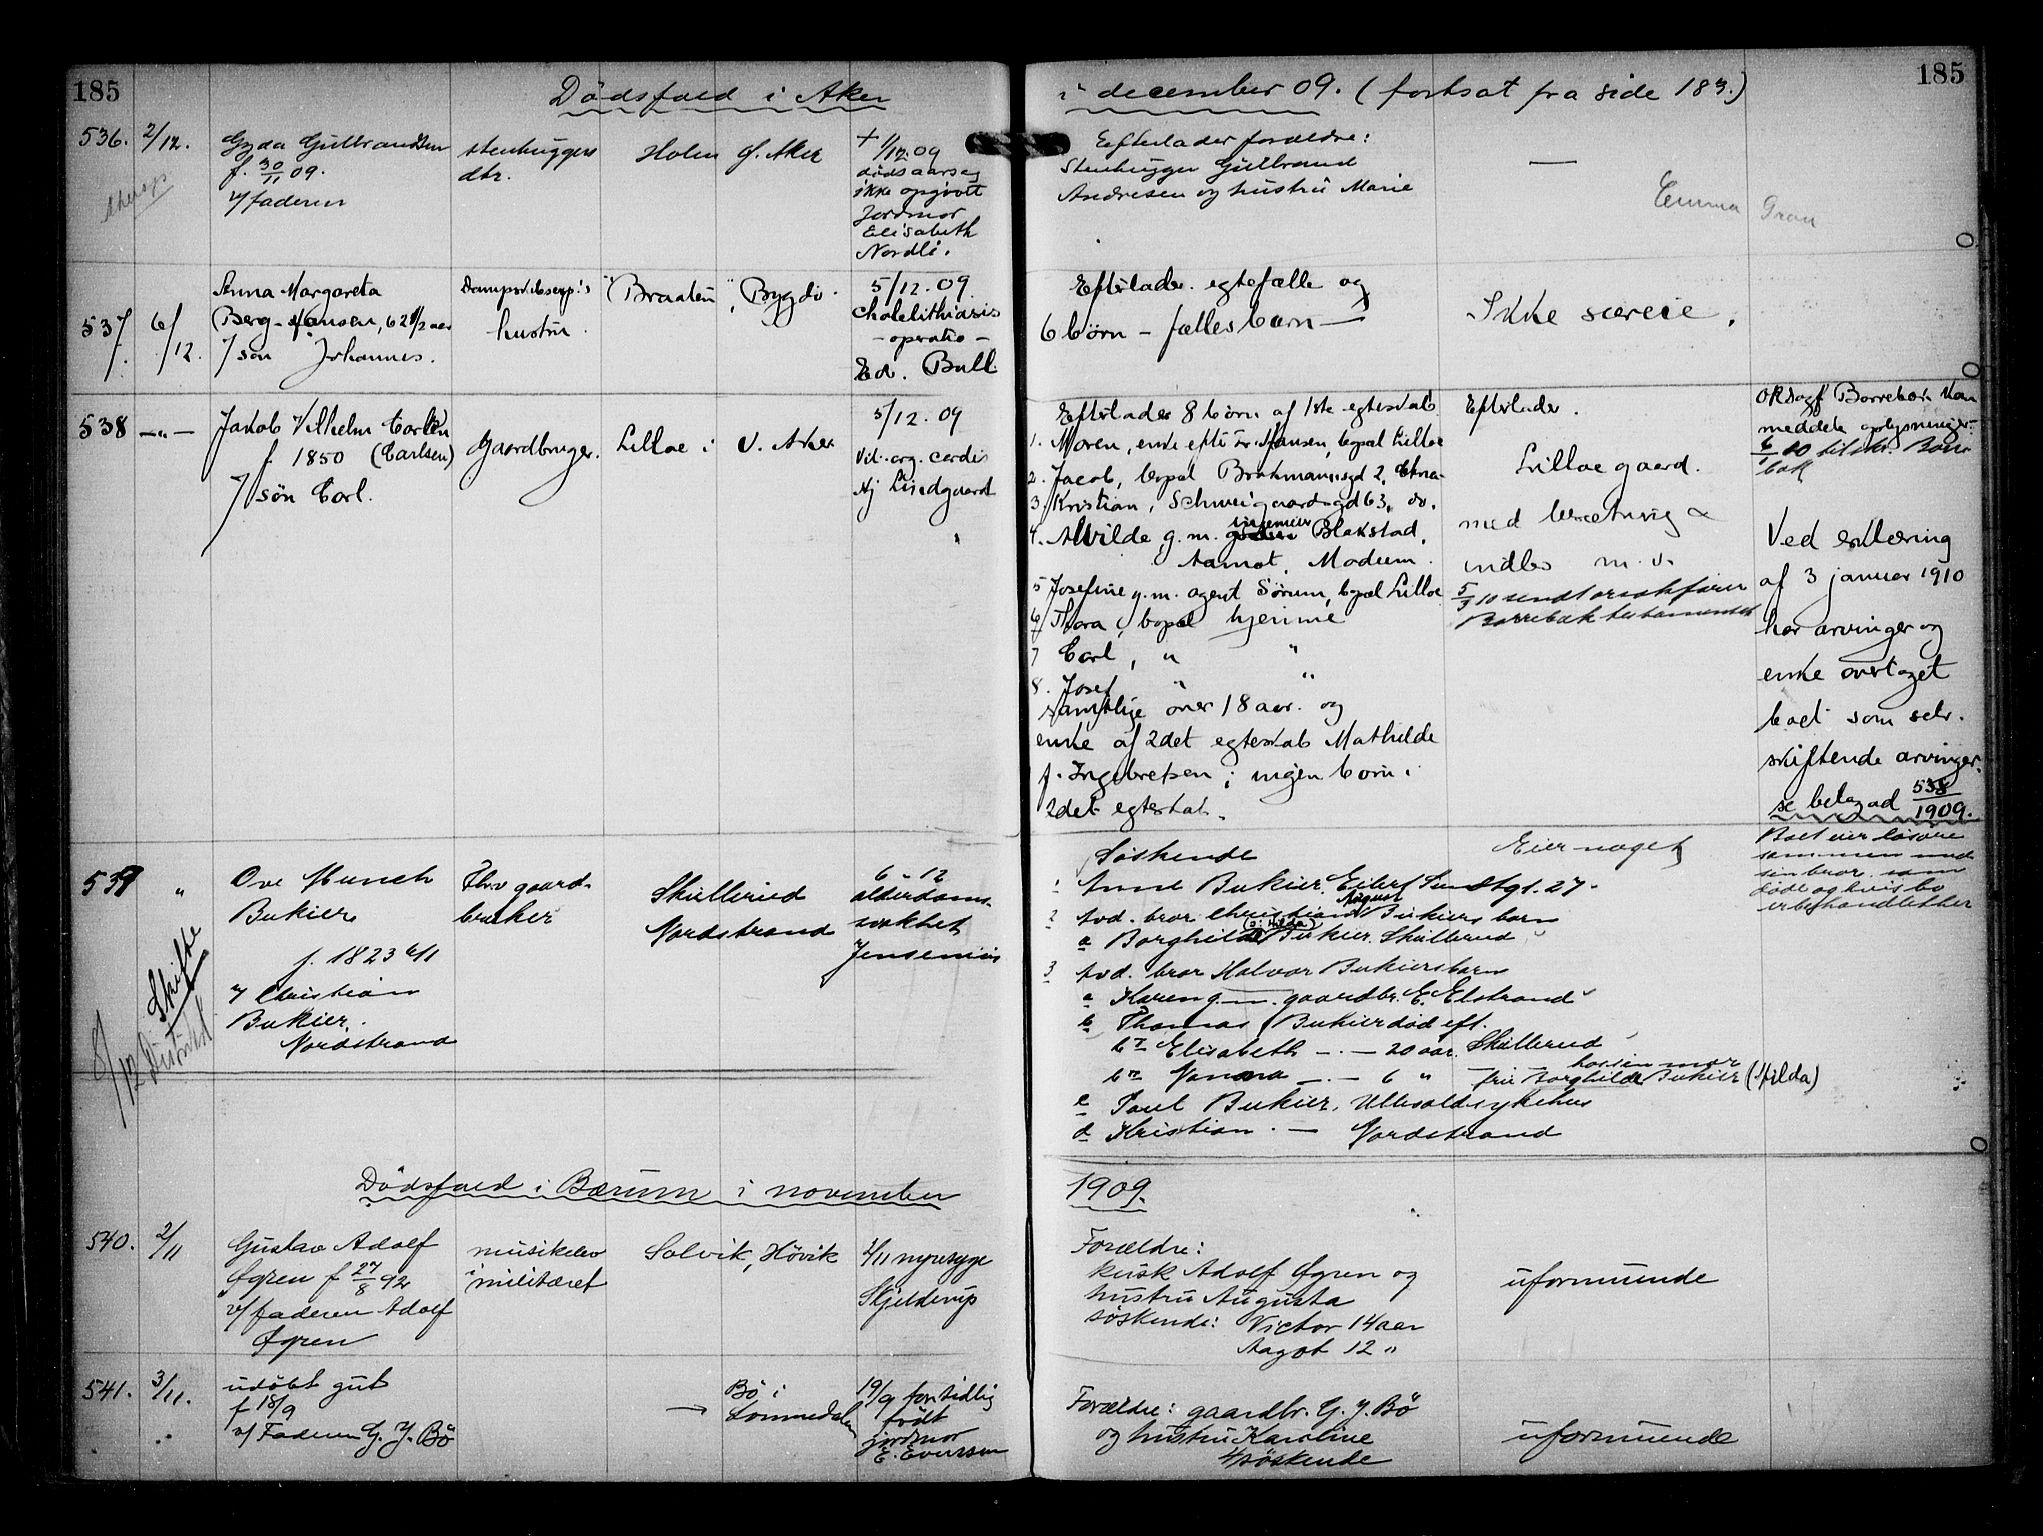 185
185
Dödsfald i Aker
i december 09. (fortsat fra side 183.)
536. 2/12.
Gyda Gulbrandsen
f. 30/11 09.
v/ faderen
stenhuggers
dtr.
Holm Ø. Aker
+ 1/12.09
dødsaarsag
ikke opgivet
Jordmor
Elisabeth
Nordli.
Efterlader forældre:
Stenhugger Gulbrand
Andresen og hustru Marie
—
Emma Gran
537 6/12.
Anna Margareta
Berg-Hansen, 62 1/2 aar
v/ søn Johannes.
hustru
Braaten, Bygdø.
5/12.09
Cholelithiasis
- operatio -
Ed. Bull
Efterlader egtefælle og
6 børn - fællesbarn -
Ikke særeie.
538 —"—
Jakob Vilhelm Carlsen
f. 1850 (Carlsen)
v/ søn Carl.
Gaardbruger.
Lilloe i V. Aker
5/12.09
Vit. org. cordis
Lindgaard
Efterlader 8 børn af 1ste egteskab
1. Maren, enke efter Hansen, bopæl Lilloe
2. Jacob, bopæl Brokmannsgd 2, Chra-
3. Kristian, Schweigaardsgd 63, do.
4. Alvilde g. m. ingeniør Blakstad,
Aamot, Modum.
5 Josefine g. m. agent Sørum, bopæl Lilloe
6 Thora, bopæl hjemme
7 Carl, " "
8. Josef " "
samtlige over 18 aar. og
enke af 2det egteskab Mathilde
f. Ingebretsen; ingen børn i
2det egteskab.
Efterlader.
Lilloe gaard.
med besætning &
indbo m. v.
5/3 10 sendt orsakfører
Borrebæk testamentet
ORsagf Borrebæk kan
meddele oplysninger.
Ved erklæring
af 3 januar 1910
har arvinger og
enke overtaget
boet som selv-
skiftende arvinger.
se bilag ad 538/1909.
539 "
Ove Munch
Bukier
f. 1823 6/11
v/ Christian
Bukier,
Nordstrand
Skifte
8/12
Fhv gaard-
bruker
Skullerud
Nordstrand
6-12
alderdoms-
svakhet
Jensenius
Søskende
1 Anne Bukier. Eilert Sundtgt. 27.
2 Avd. bror Christian August Bukiers barn
a Borghild (o: Hilda) Bukier. Skullerud
3 Avd. bror Halvor Bukiers barn
a Karen g. m. gaardbr. E. Elstrand
b Thomas Bukier død eft.
Elisabeth —.— 20 aar. Skullerud
—.— 6 " hos sin mor
fru Borghilde Bukier (Hilda)
c Paul Bukier, Ullevaal sykehus
d Kristian. — Nordstrand
Eier noget
Boet eier løsøre
sammen med
sin bror som
døde og hvis bo
er behandlet her
Dödsfald i Bærum i november
1909.
540. 2/11
Gustav Adolf
Øgren f 27/8 92
v/ faderen Adolf
Øgren
musikelev
i militæret
Solvik, Høvik
2/11 nyresyge
Skjelderup
Forældre:
kusk Adolf Øgren og
hustru Augusta
søskende: Victor 14 aar
Aagot 12 "
uformuende
541. 3/11.
udöbt gut
f 18/9
v/ Faderen G. J. Bö
Bö i
Lommedalen
19/9 for tidlig
født
jordmor
E. Evensen
Forældre: gaardbr. G. J. Bö
og hustru Karoline
4 søskende
uformuende